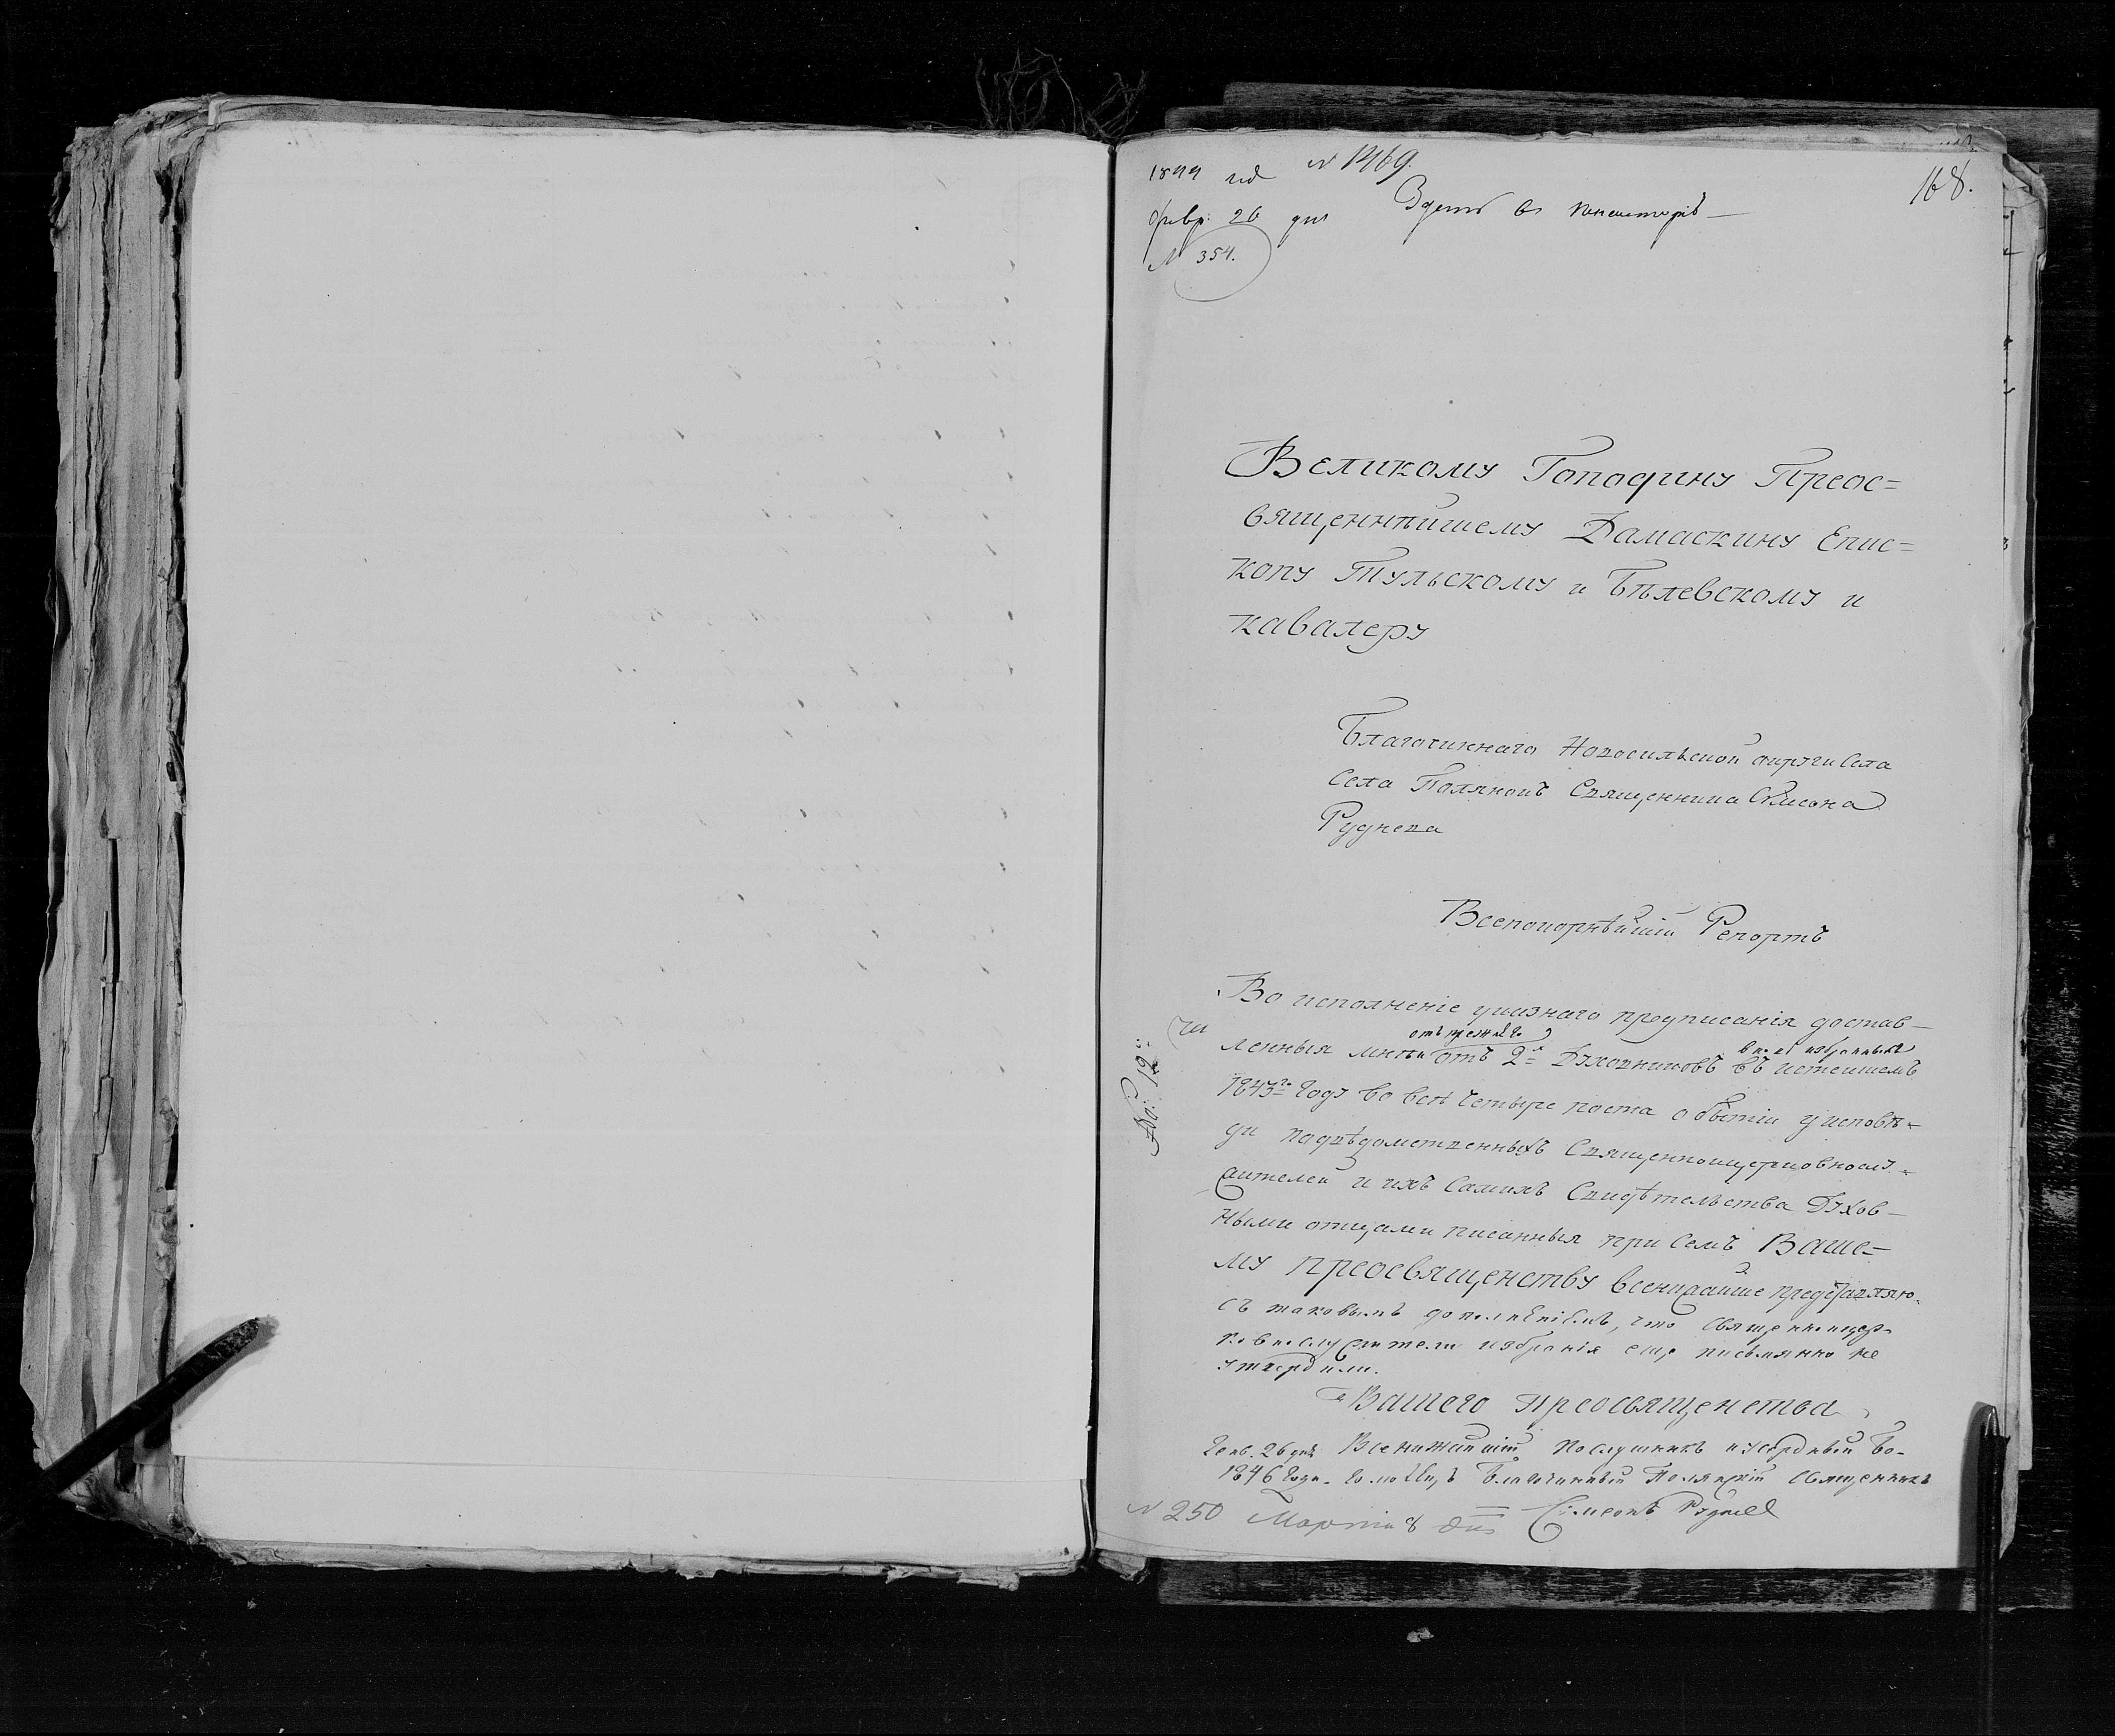 1844 год № 1469.
168.
февр: 26 дня Здать въ консисторію
№ 354.
Великому Господину Преос=
вященнѣйшему Дамаскину Епис=
копу Тульскому и Бѣлевскому и
кавалеру
Благочиннаго Новосильской округи Села
Села Полянокъ Священника Симеона
Руднева
Всепокорнѣйшій Репортъ
Во исполненіе указнаго предписанія достав-
отъ прежняго вновь избранныхъ
ленныя мнѣ отъ 2х Духовниковъ въ истекшемъ
1843го году во всѣ четыре поста о бытіи у исповѣ-
ди подвѣдомственныхъ Священноцерковнослу-
жителей и ихъ самихъ Свидѣтельства Духов-
ными отцами писанныя при семъ Ваше-
му Преосвященству всенижайше представляю
съ таковымъ дополненіемъ, что священноцер-
ковнослужители избранія еще письмянно не
утвердили.
Вашего Преосвященства
Генв. 26 дня Всенижайшій послушникъ и усердный Бо-
1846 года. гомолецъ Благочинный Полянскій священникъ
Симеонъ Рудневъ
№ 250 Марта 8 дня